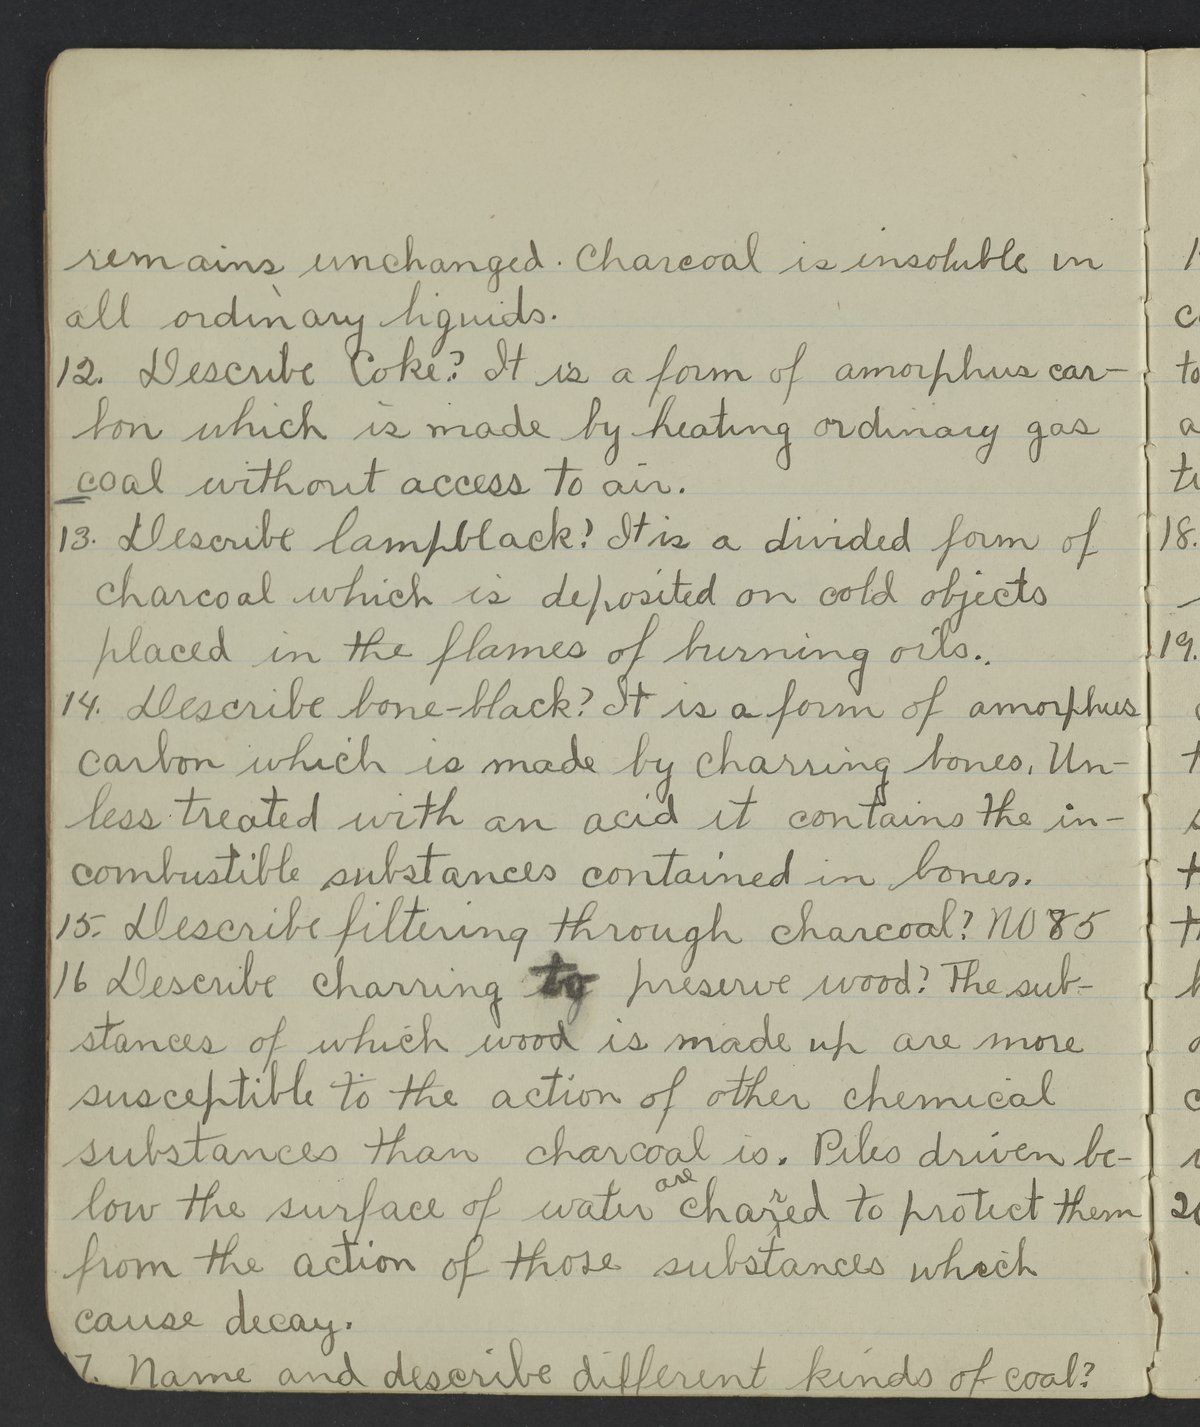 remains unchanged. Charcoal is insoluble in
all ordinary liquids.
12. Describe Coke? It is a form of amorphus car-
bon which is made by heating ordinary gas
coal without access to air.
13. Describe lampblack? It is a divided form of
charcoal which is deposited on cold objects
placed in the flames of burning oils..
14. Describe bone-black? It is a form of amorphus
carbon which is made by charring bones. Un-
less treated with an acid it contains the in-
combustible substances contained in bones.
15. Describe filtering through charcoal? NO 85
16 Describe charring to preserve wood? The sub-
stances of which wood is made up are more
susceptible to the action of other chemical
substances than charcoal is. Piles driven be-
low the surface of water are charred to protect them
from the action of those substances which
cause decay.
17. Name and describe different kinds of coal?
18.
19.